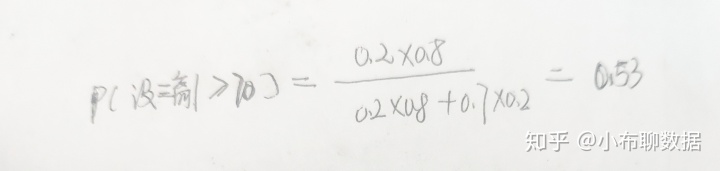 P(没三箭|≥70) = \frac{0.2×0.8}{0.2×0.8+0.7×0.2} = 0.53
知乎 @小布聊数据